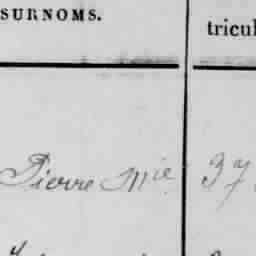 SURNOMS.
tricul
Pierre Mie 37